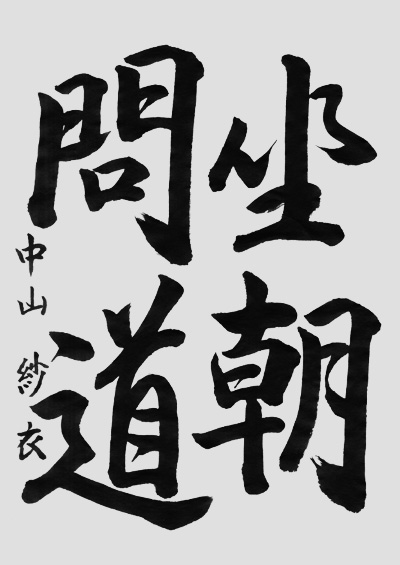 坐朝
問道
中山紗衣